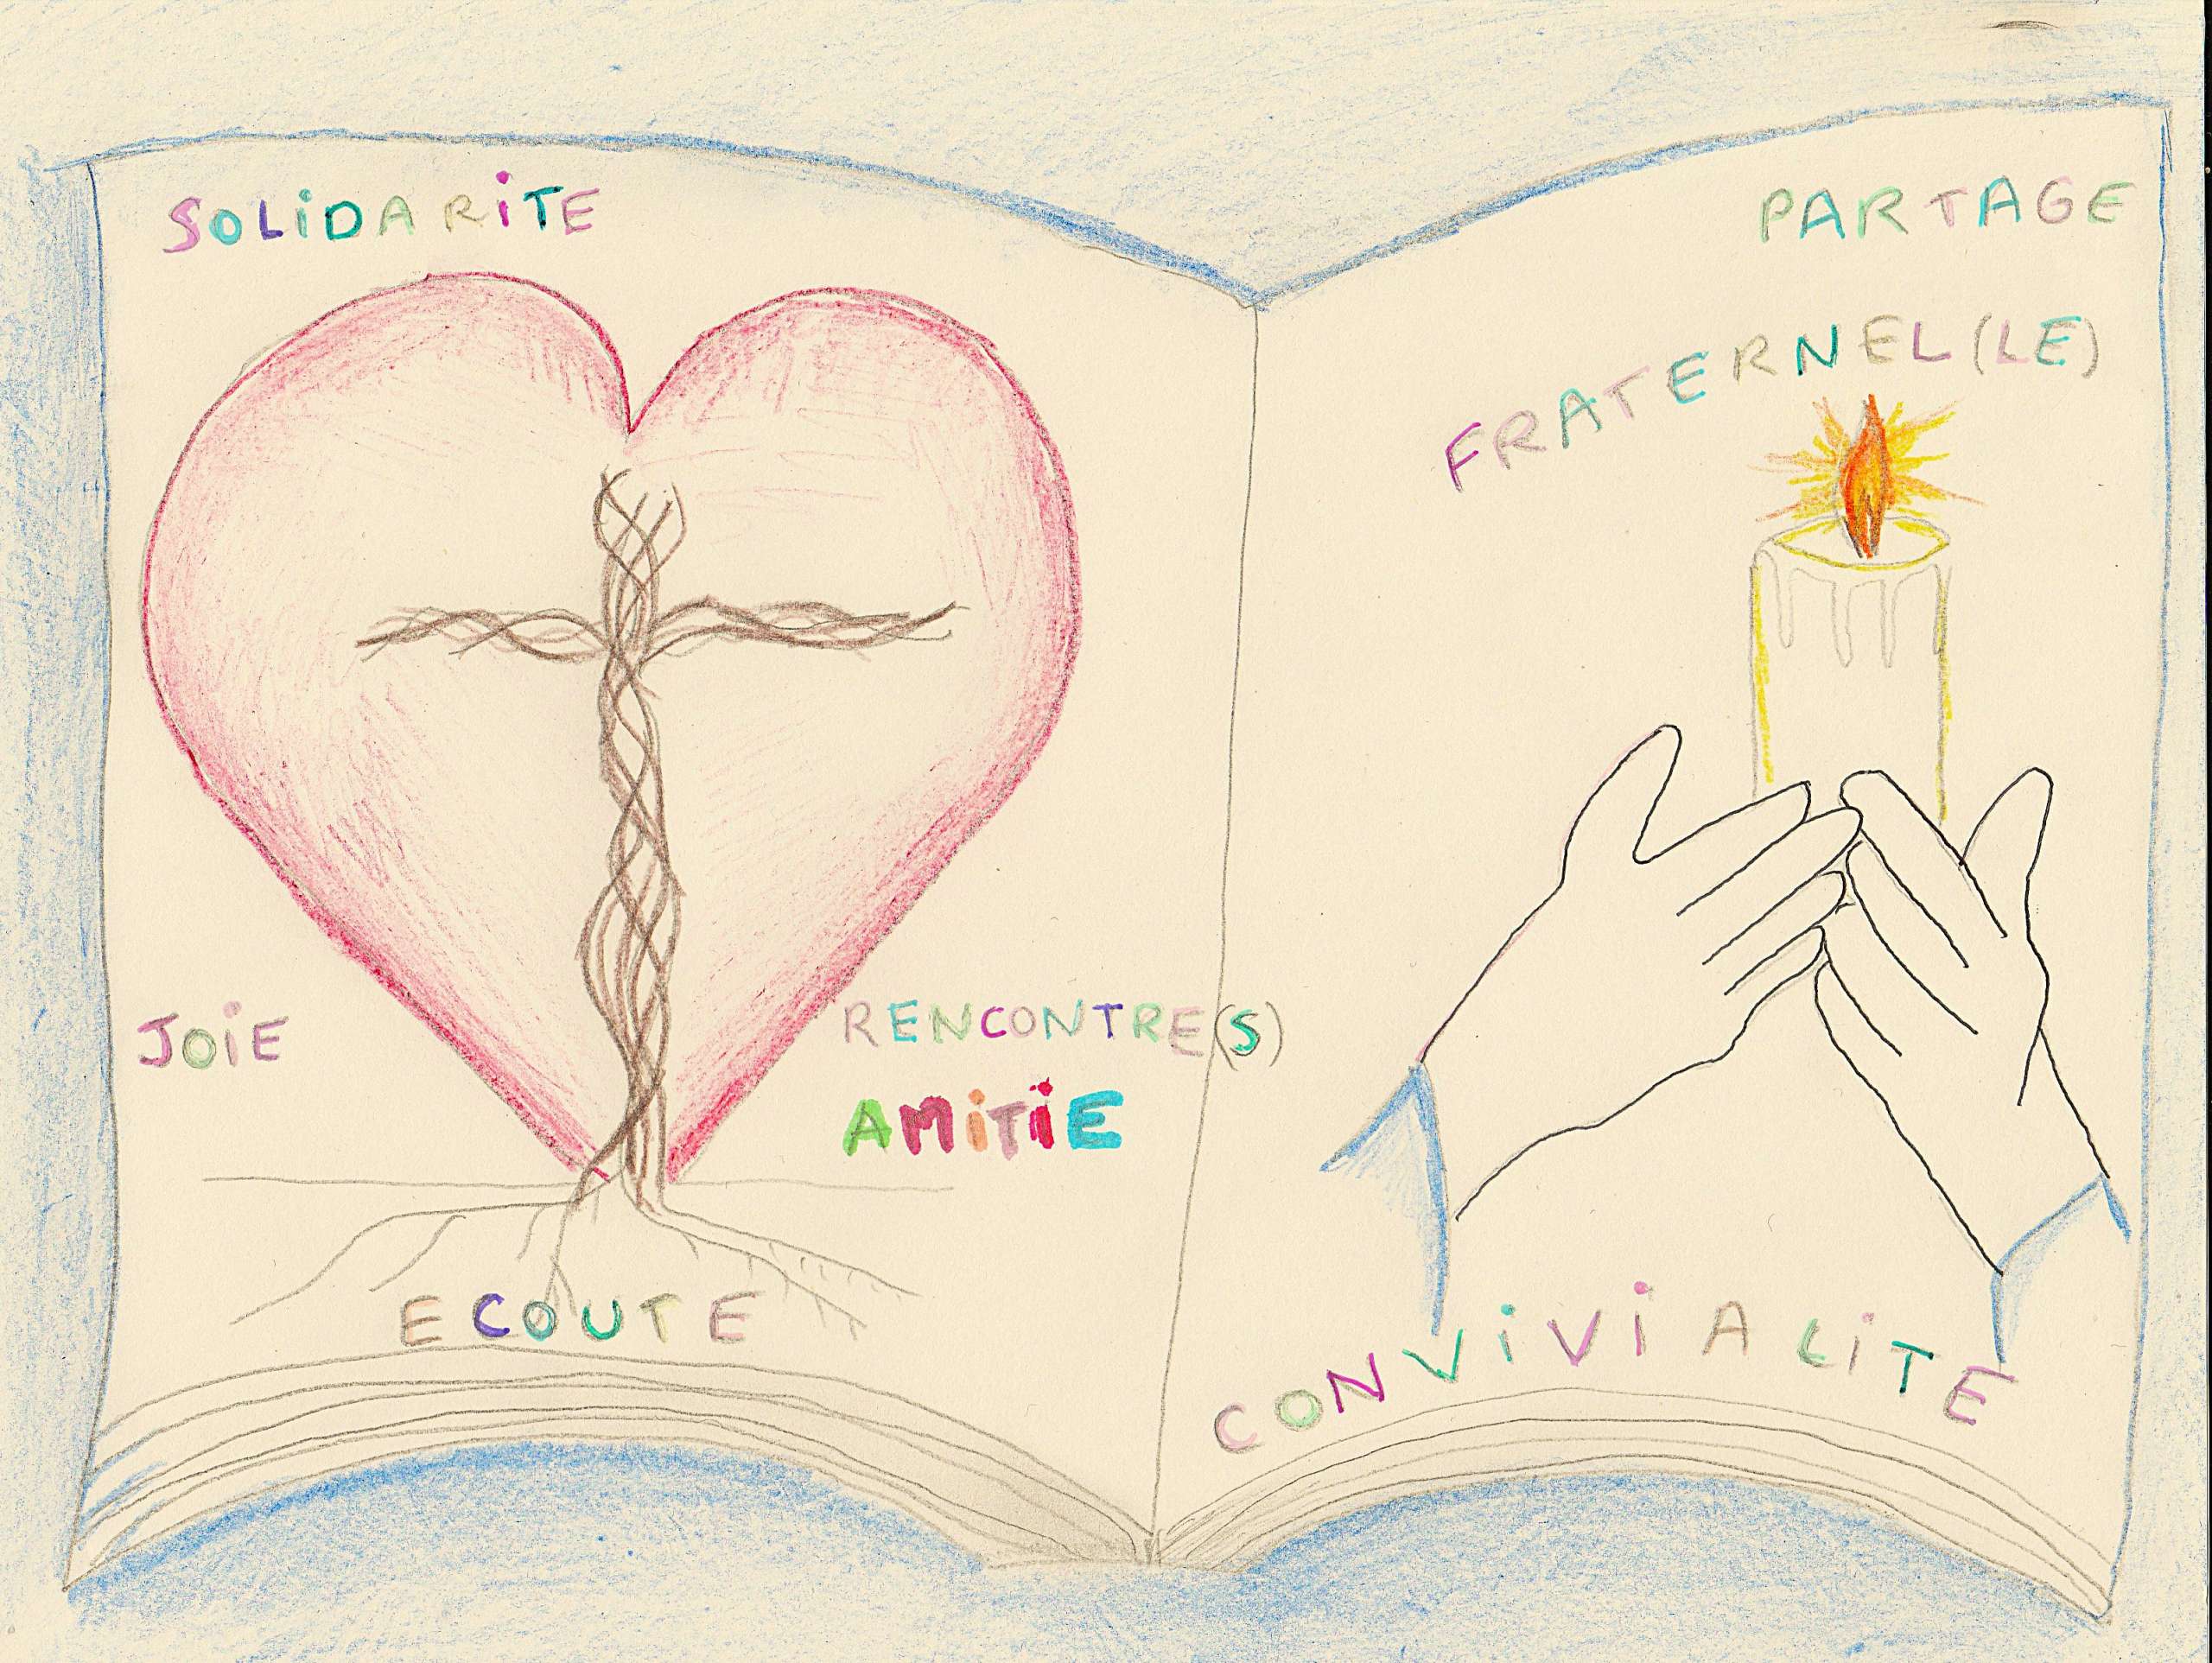 SOLiDARiTE
JOiE
RENCONTRE(S)
AMiTiE
ECOUTE
PARTAGE
FRATERNEL(LE)
CONViViALiTE